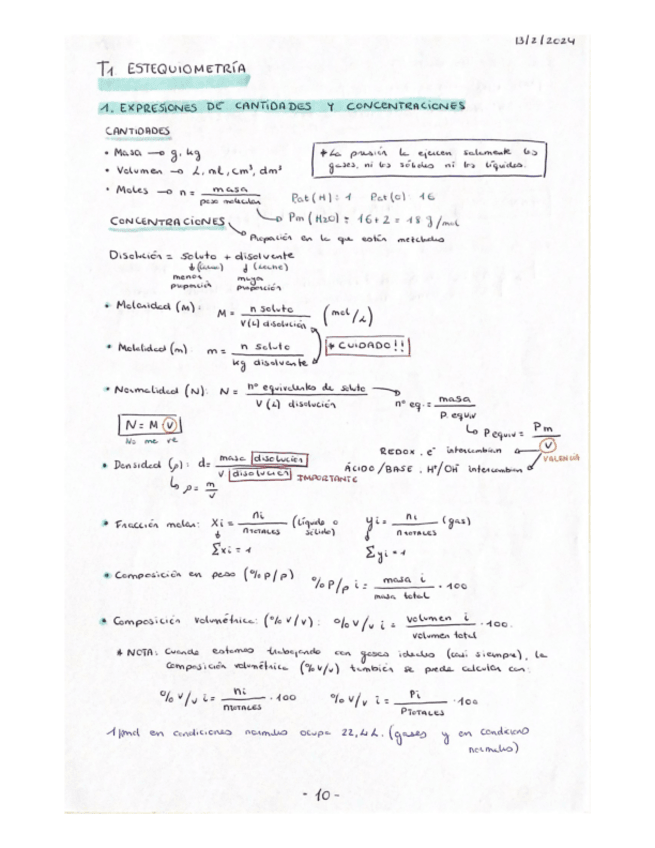 13/2/2024
T1 ESTEQUIOMETRÍA
1. EXPRESIONES DE CANTIDADES Y CONCENTRACIONES
CANTIDADES
• Masa → g, kg
* La presión la ejercen solamente los
gases, ni los sólidos ni los líquidos.
• Volumen → L, mL, cm³, dm³
• Moles → n = masa / peso molecular
Pat (H) : 1 Pat (O) : 16
Pm (H2O) = 16+2 = 18 g/mol
CONCENTRACIONES
Proporción en la que están mezclados
Disolución = soluto + disolvente
menor proporción
mayor proporción
• Molaridad (M): M = n soluto / V(L) disolución (mol/L)
• Molalidad (m): m = n soluto / kg disolvente
* CUIDADO!!
• Normalidad (N): N = nº equivalentes de soluto / V (L) disolución
nº eq. = masa / P. equiv
N = M · V
No me ve
P equiv = Pm / V
VALENCIA
REDOX, e⁻ intercambian
ÁCIDO/BASE, H⁺/OH⁻ intercambian
• Densidad (ρ): d = masa disolución / V disolución IMPORTANTE
ρ = m / v
• Fracción molar: Xi = ni / nTOTALES (líquido o sólido) yi = ni / nTOTALES (gas)
Σxi = 1 Σyi = 1
• Composición en peso (% p/p) % P/p i = masa i / masa total · 100
• Composición volumétrica: (% v/v) : % v/v i = volumen i / volumen total · 100.
* NOTA: Cuando estamos trabajando con gases ideales (casi siempre), la
composición volumétrica (% v/v) también se puede calcular con:
% v/v i = ni / nTOTALES · 100 % v/v i = Pi / PTOTALES · 100
1 mol en condiciones normales ocupa 22,4 L. (gases y en condiciones
normales)
- 10 -